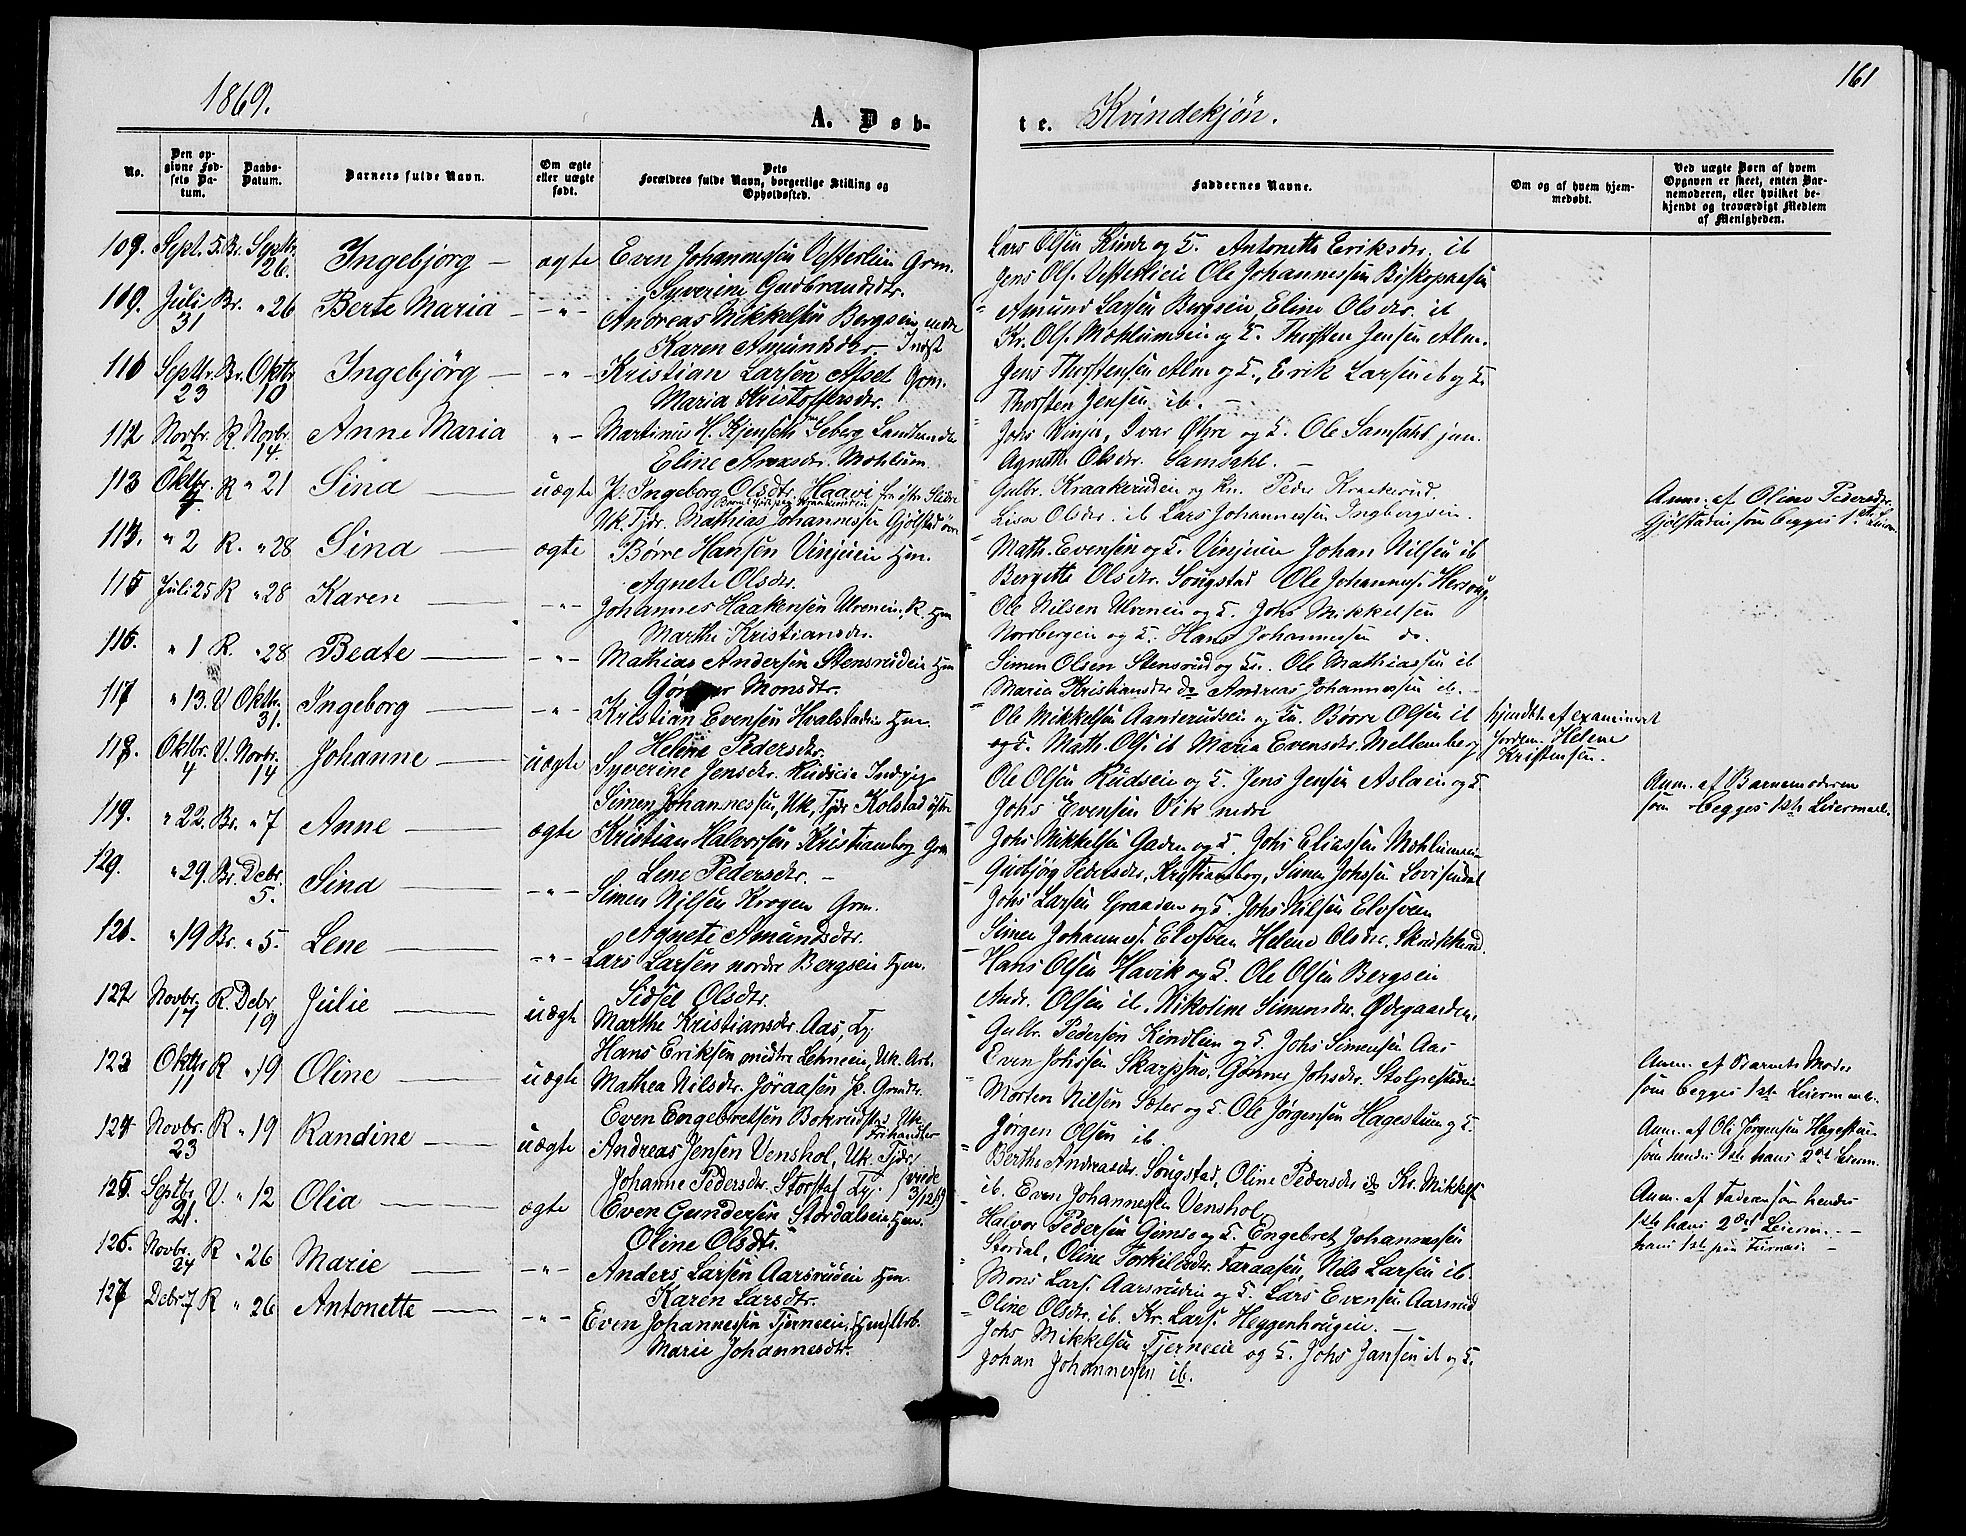 1869.
161
A. Døb-
te. Kvindekjøn.
No.
Den op-
givne Fød-
sels Da-
tum.
Daabs-
Datum.
Barnets fulde Navn.
Om ægte
eller uægte
født.
Dets
Forældres fulde Navn, borgerlige Stilling og
Opholdssted.
Faddernes Navne.
Om og af hvem hjem-
medøbt.
Ved uægte Børn af hvem
Opgaven er skeet, enten Bar-
nemoderen, eller hvilket be-
kjendt og troværdigt Medlem
af Menigheden.
109. Sept. 5. Br. Septbr. 26. Ingebjørg — ægte Even Johannessen Vesterlien Grm.
Syverine Gudbrandsdtr.
Lars Olsen Kinde og K. Antonette Eriksdtr. ib
Jens Ols. Vesterlien Ole Johannessen Biskoplien
110. Juli 31 Br. " 26 Berte Maria — " — Andreas Mikkelsen Bergseie nedre
Karen Amundsdtr. Indst
Amund Larsen Bergseie, Eline Olsdtr. ib
Kr. Ols. Mæhlumseie og K. Thorsten Jensen Alm.
111 Septbr. 23 Br. Oktbr 10 Ingebjørg — " — Kristian Larsen Afset Grm.
Maria Kristoffersdtr.
Jens Thorstensen Alm og K., Erik Larsen ib og K.
Thorsten Jensen ib. —
112 Novbr. 2 R. Novbr. 14. Anne Maria " — Martinus H. Kjenseth Seberg Landhandler
Eline Andersdtr. Mæhlum
Johs Vinje, Ivar Øhre og K. Ole Samdahl jun.
Agnethe Olsdtr. Samdahl. —
113 Oktbr. 4. R " 21 Sina — uægte P. Ingeborg Olsdtr. Haavi fra østre Slidre
Uk. Tjdr. Mathias Johannessen Gjølstad øvre
Gulbr. Kraakerudeie og Kn. Peder Kraakerud.
Lisa Olsdtr. ib Lars Johannessen Ingbergseie.
Anm. af Oline Pedersdtr.
Gjølstadeie som begges 1ste Leierm.
114. " 2 R. " 28 Sina — ægte Børre Hansen Vinjeeie Hm.
Agnete Olsdtr.
Math. Evensen og K. Vinjeeie Johan Nilsen ib
Bergette Olsdtr. Songstad Ole Johanness. Hersoug
115 Juli 25 R " 28 Karen — " — Johannes Haakensen Ulveneie, R. Hm
Marthe Kristiansdtr.
Ole Nilsen Ulveneie og K. Johs Mikkelsen
Nordbergeie og K. Hans Johannessen do.
116. " 1 R. " 28 Beate — " — Mathias Andersen Stensrudeie Hm
Monsdtr.
Simen Olsen Stensrud og K. Ole Mathiassen ib
Maria Kristiansdtr do Andreas Johannessen ib. —
117 " 13. V Oktbr. 31. Ingeborg — " — Kristian Evensen Hvalstadeie Hm.
Helene Pedersdtr.
Ole Mikkelsen Aanderudseie og Kn. Børre Olsen ib
og K. Math. Ols. ib Maria Evensdtr. Mellemberg
hjemdøbt af examineret
Jordem. Helene
Kristensen.
118. Oktbr. 4 V. Novbr. 14 Johanne — uægte Syverine Jensdtr. Rudseie Indpige
Simen Johannessen, Uk. Tjdr. Kolstad østre
Ole Olsen Rudseie og K. Jens Jensen Aslaeie og K
Johs Evensen Vik nedre
Anm. af Barnemoderen
som begges 1ste Leiermaal.
119. " 22. Br. " 7 Anne — ægte Kristian Halvorsen Kristiansberg Grm
Lene Pedersdtr. —
Johs Mikkelsen Gaden og K. Johs Eliassen Mæhlumseie
Gudbjørg Pedersdtr, Kristiansberg, Simen Johssen Lovisendal
120. " 29. Br. Debr. 5. Sina — " — Simen Nilsen Krogen Grm.
Agnete Amundsdtr.
Johs Larsen Graaden og K. Johs Nilsen Elvsveen
Simen Johanness. Elvsveen Helene Olsdtr. Skrutherud.
121. " 19 Br. " 5. Lene — " — Lars Larsen nordre Bergseie Hm.
Sidsel Olsdtr.
Hans Olsen Havik og K. Ole Olsen Bergseie
Andr. Olsen ib. Nikoline Simensdtr. Ødegaarden.
122 Novbr. 17 R. Debr. 19 Julie — uægte Marthe Kristiansdtr. Aas, Tj.
Hans Eriksen midtre Lehneeie, Uk. Arb.
Gulbr. Pedersen Kindlien og K. Johs Simensen Aas
Even Johssen Skarpsno. Gønner Johsdtr. Stolpestadeie
123 Oktbr. 11 R " 19 Oline — uægte Mathea Nilsdtr. Jøraasen P. Gmdtr.
Even Engebretsen Bohrudstad Uk.
Frihandler
Morten Nilsen Sæter og K. Ole Jørgensen Hagestuen og K.
Jørgen Olsen ib.
Anm. af Barnets Moder
som begges 1ste Leierm.
124 Novbr. 23 R " 19 Randine — uægte Andreas Jensen Venshol, Uk. Tjdr.
Johanne Pedersdtr. Storstad Tj. 3/12 69
Berthe Andreasdtr. Songstad, Oline Pedersdtr do Kr. Mikkels.
ib. Even Johannessen Venshol.
Anm. af Ole Jørgensen Hagestuen
som hendes 1ste hans 2det Leierm.
125. Septbr. 21. V. " 12 Olia — ægte Even Gundersen Stordalseie Hm.
Oline Olsdtr.
Halvor Pedersen Gimse og K. Engebret Johannessen
Stordal, Oline Torkildsdtr. Faraasen Nils Larsen ib.
Anm. af Faderen som hendes
1ste hans 2det Leierm. —
hans 1ste paa Furnæs. —
126. Novbr. 24 R " 26 Marie — " — Anders Larsen Aarsrudeie Hm.
Karen Larsdtr.
Mons Lars. Aarsrudeie og K. Lars Evensen Aarsrud
Oline Olsdtr. ib. Kr. Lars. Heggenhougeie. —
127 Debr 7 R " 26 Antonette — " — Even Johannessen Tjerneeie (Hm) Arb.
Marie Johannesdtr.
Johs Mikkelsen Tjerneeie og K. Johs Jansen ib og K.
Johan Johannessen ib.